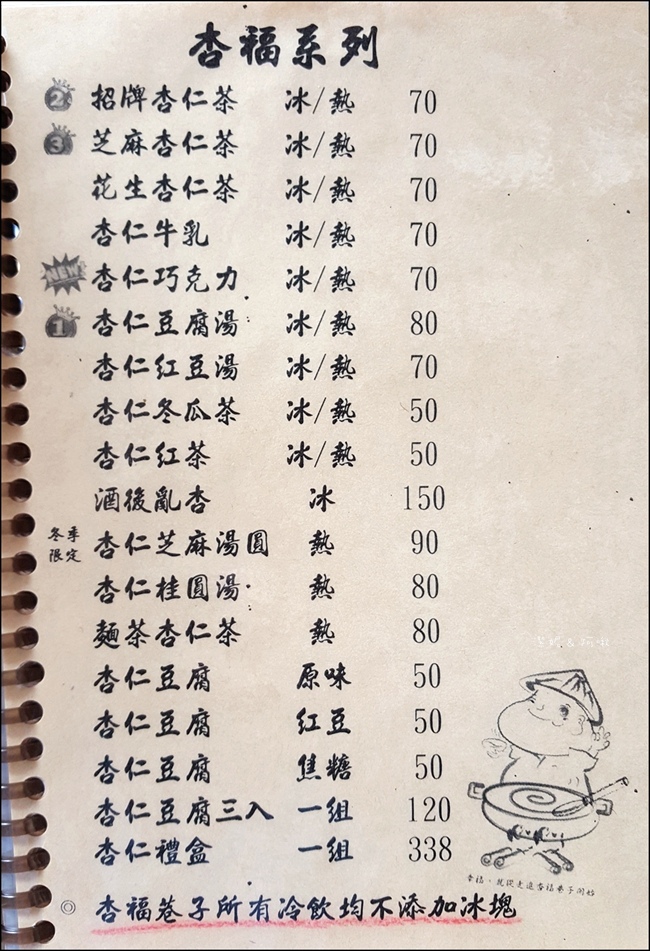 杏福系列
2 招牌杏仁茶 冰/熱 70
3 芝麻杏仁茶 冰/熱 70
花生杏仁茶 冰/熱 70
杏仁牛乳 冰/熱 70
NEW 杏仁巧克力 冰/熱 70
1 杏仁豆腐湯 冰/熱 80
杏仁紅豆湯 冰/熱 70
杏仁冬瓜茶 冰/熱 50
杏仁紅茶 冰/熱 50
酒後亂杏 冰 150
冬季限定 杏仁芝麻湯圓 熱 90
杏仁桂圓湯 熱 80
麵茶杏仁茶 熱 80
杏仁豆腐 原味 50
杏仁豆腐 紅豆 50
杏仁豆腐 焦糖 50
杏仁豆腐三入 一組 120
杏仁禮盒 一組 338
幸福，就從走進杏福巷子開始
◎ 杏福巷子所有冷飲均不添加冰塊